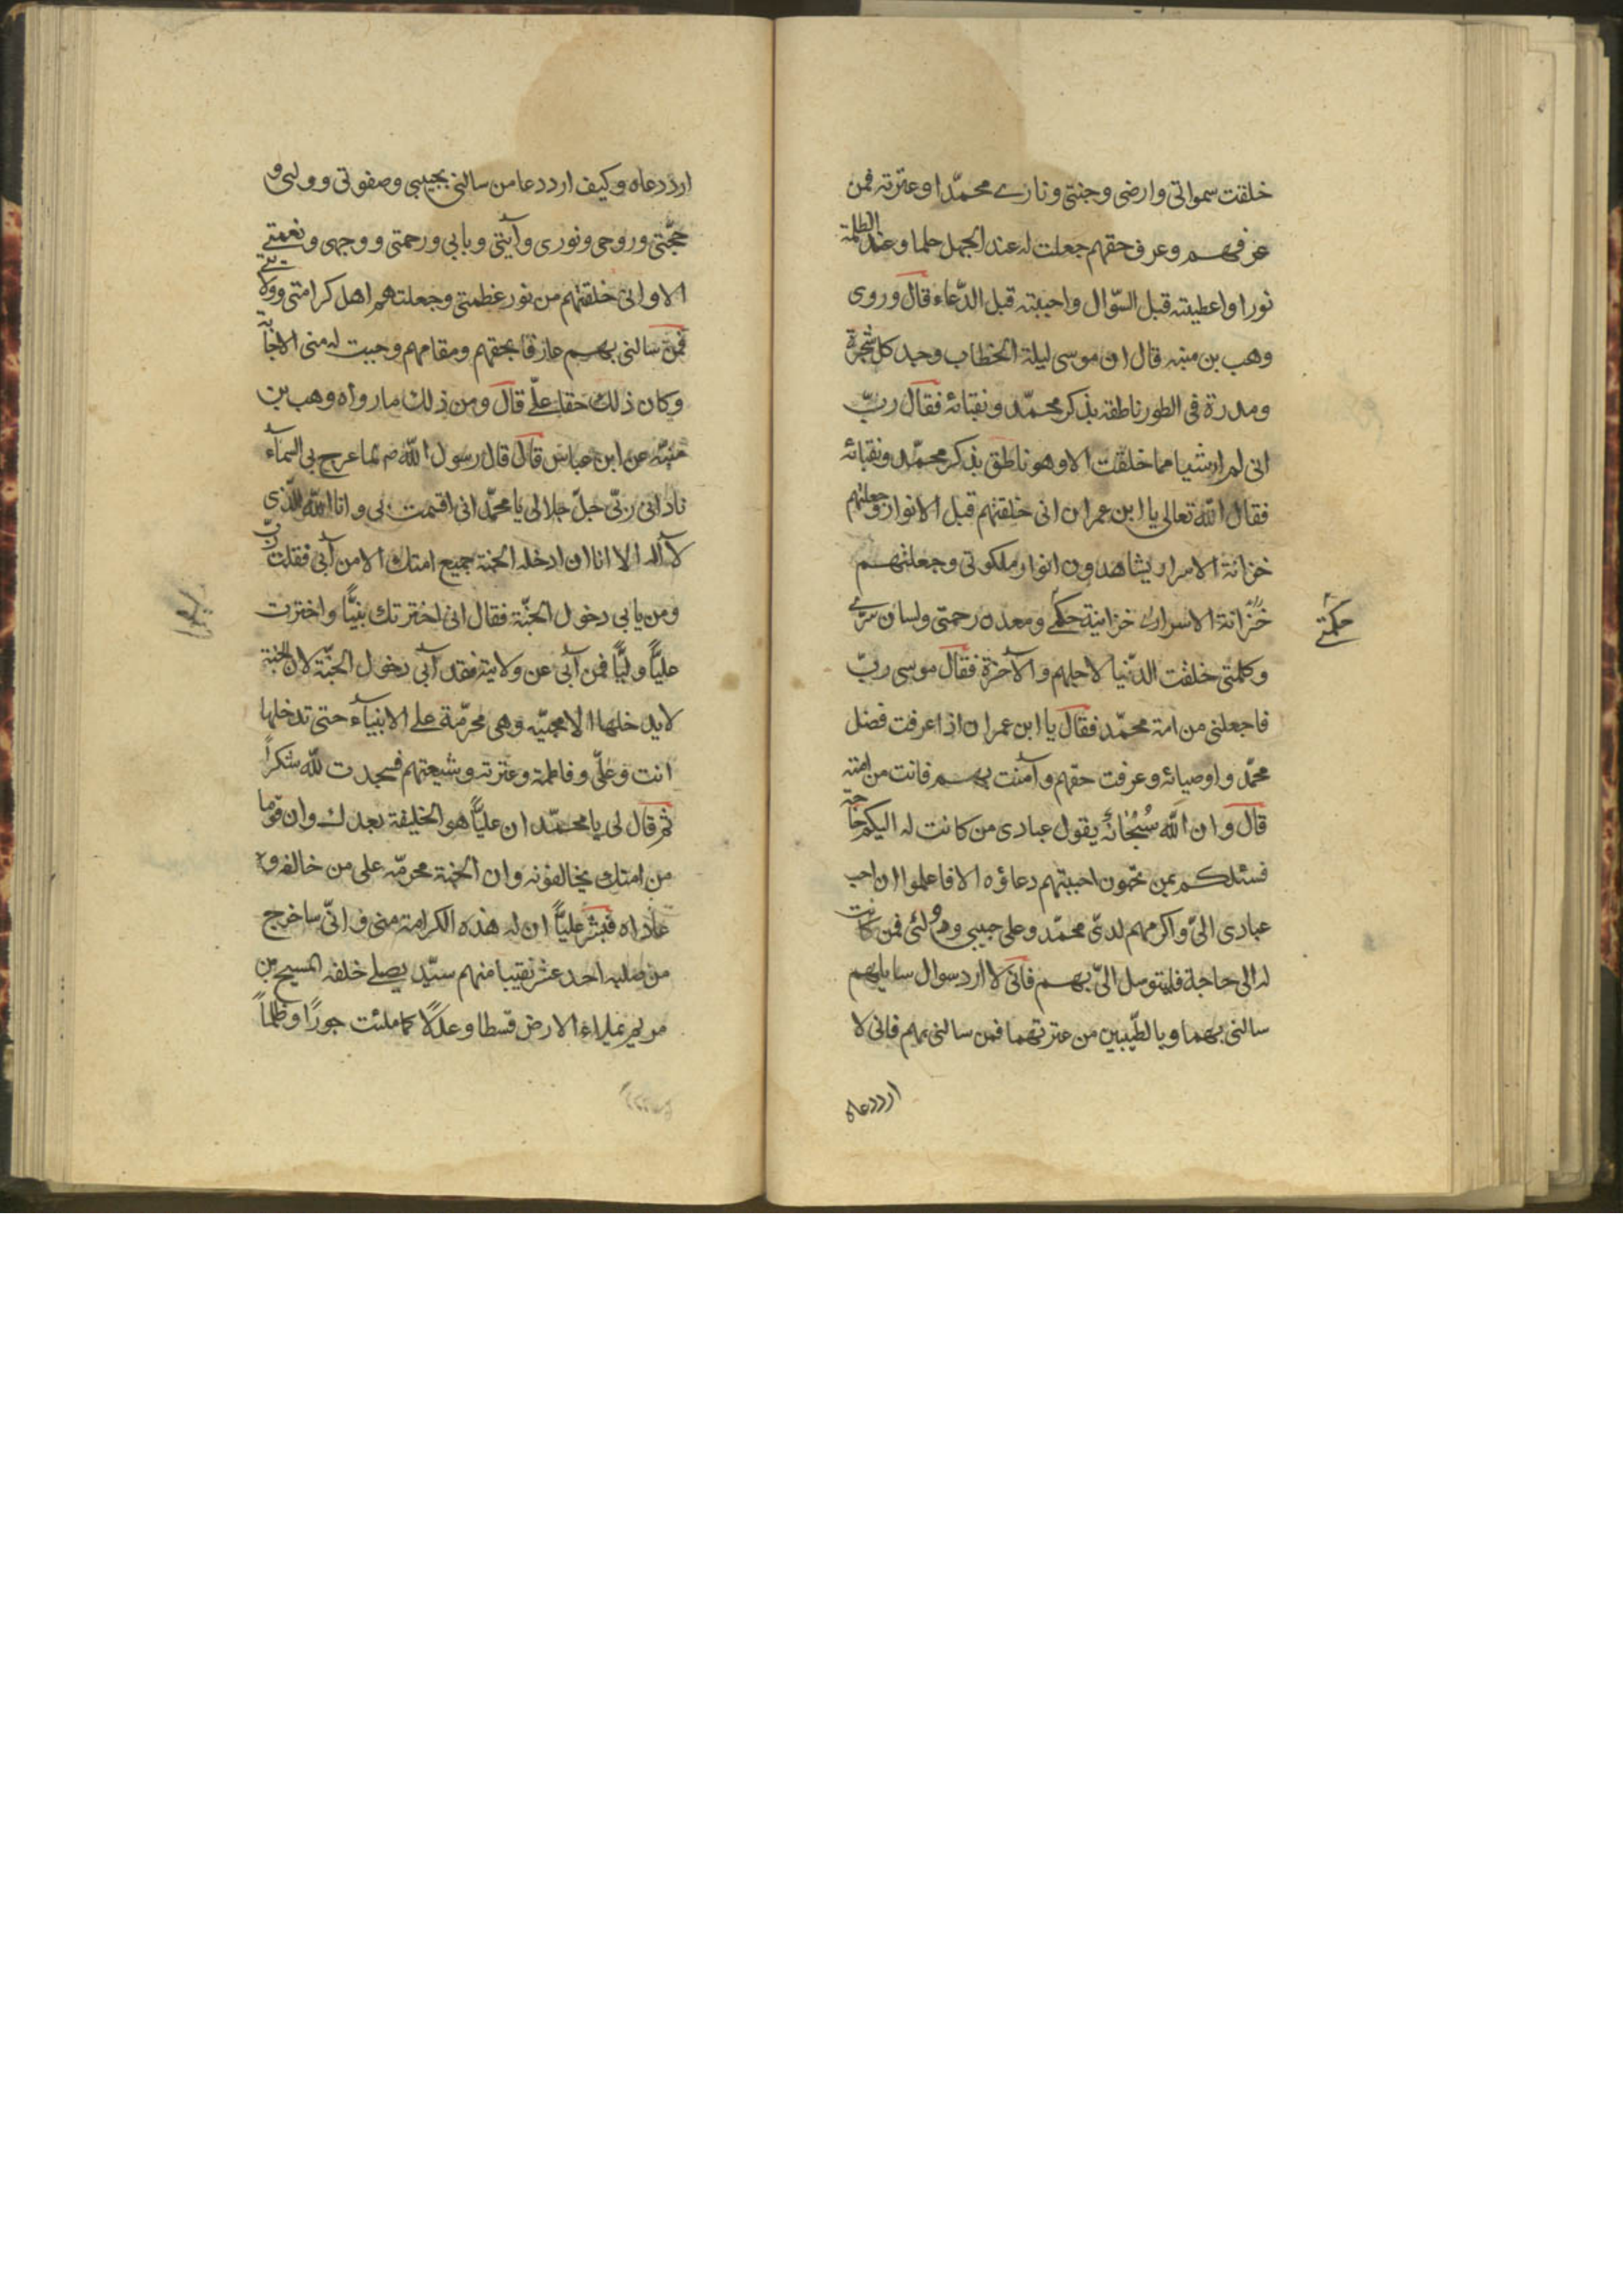 خلقت سمواتی وارضی وجنتی ونارے محمّدا وعترته فمن
عرفهم وعرف حقهم جعلت له عند الجهل حلما وعند الظلمة
نورا واعطیته قبل السّؤال واجیبته قبل الدّعاء قال وروی
وهب بن منبه قال ان موسی لیلة الخطاب وجد کل شجرة
ومدرة فی الطور ناطقة بذکر محمّد ونقبائه فقال ربّ
انی لم ار شیا مما خلقت الا وهو ناطق بذکر محمّد ونقبائه
فقال اللّه تعالی یا ابن عمران انی خلقتهم قبل الانوار وجعلتهم
خزانة الاسرار یشاهدون انوار ملکوتی وجعلتهم
خزانة الاسرار خزانیة حکمے ومعدن رحمتی ولسان سرّے
حکمتے
وکلمتی خلقت الدّنیا لاجلهم والآخرة فقال موسی ربّ
فاجعلنی من امة محمّد فقال یا ابن عمران اذا عرفت فضل
محمّد واوصیائه وعرفت حقهم وآمنت بهم فانت من امته
قال وان اللّه سُبْحَانَهُ یقول عبادی من کانت له الیکم حاجة
فسئلکم بمن تحبون اجبتم دعاؤه الا فاعلموا ان احب
عبادی الیّ واکرمهم لدیّ محمّد وعلی حبیبی وولئی فمن کانت
له الی حاجة فلیتوسل الیّ بهم فانی لا ارد سوال سایلهم
سالنی بهما وبالطّیبین من عترتهما فمن سالنی بهم فانی لا
ارد دعاه
ارد دعاه وکیف ارد دعا من سالنی بحبیبی وصفوتی وولیی و
حجّتی وروحی ونوری وآیتی وبابی ورحمتی ووجهی ونعمتے
الا وانی خلقتهم من نور عظمتی وجعلتهم اهل کرامتی وولایتے
فمن سالنی بهم عارفا بحقهم ومقامهم وجبت له منی الاجابة
وکان ذلک حقا علیّ قال ومن ذلک ما رواه وهب بن
منبّه عن ابن عباس قال قال رسول اللّه ص لما عرج بی السمآء
نادانی ربّی جلّ جلاله یا محمّد انی اقسمت بی وانا اللّه الّذی
لا آله الا انا ان ادخل الجنة جمیع امتک الا من آبی فقلت ربّ
ومن یابی دخول الجنّة فقال انی اخترتک نبیًّا واخترت
علیًّا ولیًّا فمن آبی عن ولایته فقد آبی دخول الجنّة لان الجنة
لا یدخلها الا محبیّه وهی محرّمة علی الانبیآء حتی تدخلها
انت وعلیّ وفاطمة وعترته وشیعتهم فسجدت للّه شکراً
ثم قال لی یا محمّد ان علیًّا هو الخلیفة بعدک وان قوما
من امتک یخالفونه وان الجنة محرمّه علی من خالفه و
عاداه فبشر علیًّا ان له هذه الکرامة منی وانّی ساخرج
من صلبه احد عشر نقیبا منهم سیّد یصلے خلفه المسیح بن
مریم یملاء الارض قسطا وعدلًا کما ملئت جورًا وظلماً